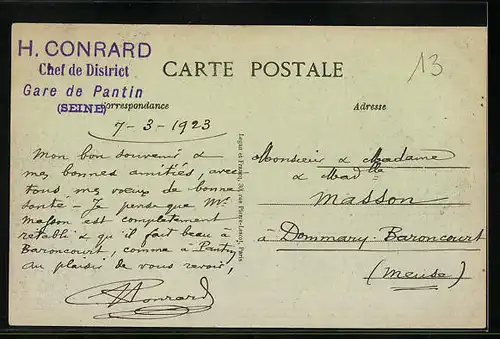 H. CONRARD
Chef de District
Gare de Pantin
(SEINE)
CARTE POSTALE
13
Correspondance
Adresse
7-3-1923
Mon bon souvenir &
mes bonnes amitiés, avec
tous mes voeux de bonne
santé - Je pense que Mr
Masson est complètement
rétabli & qu'il fait beau à
Baroncourt, comme à Pantin,
au plaisir de vous revoir,
HConrard
Monsieur & Madame
& Madlle
Masson
à Dommary-Baroncourt
(Meuse)